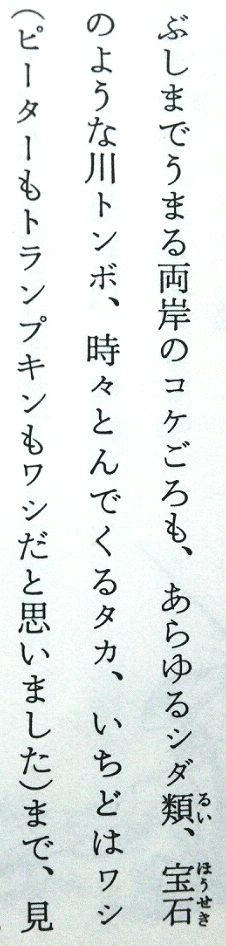 ぶしまでうまる両岸のコケごろも、あらゆるシダ類、宝石
のような川トンボ、時々とんでくるタカ、いちどはワシ
(ピーターもトランプキンもワシだと思いました)まで、見